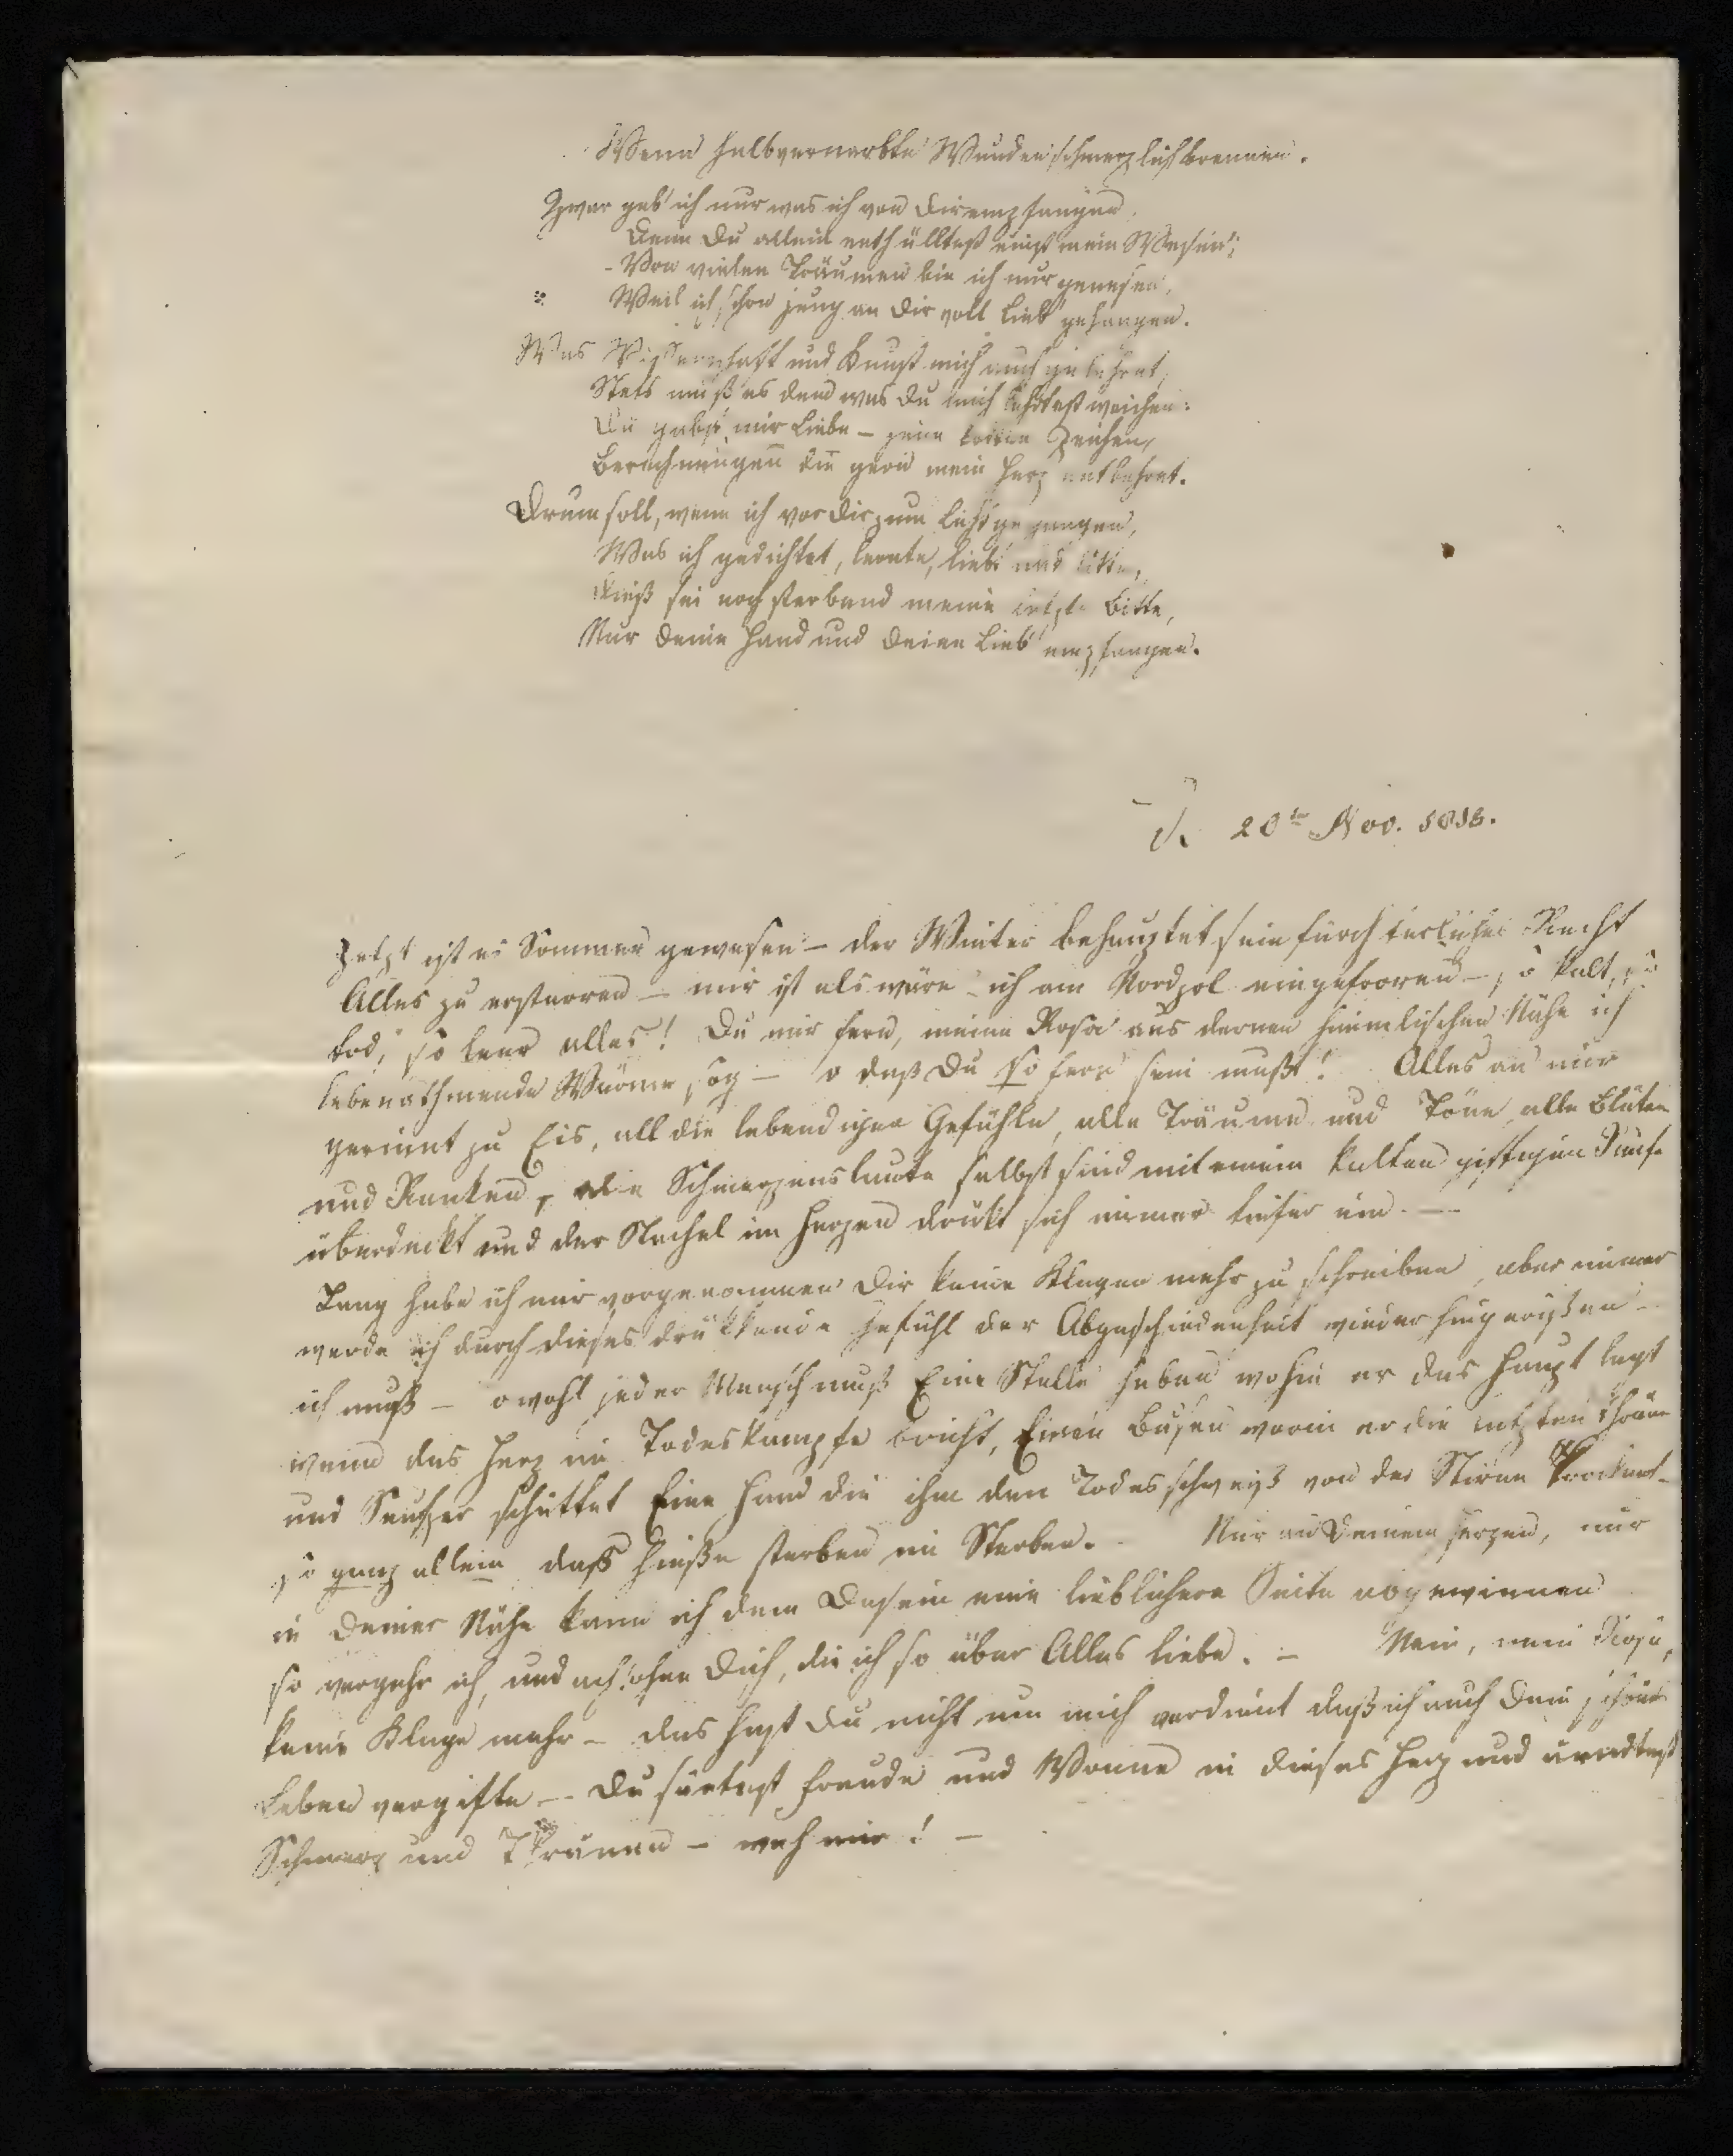 Wenn halbvernarbte Wunden schmerzlich brennen.
Zwar geb' ich nur was ich von Dir empfangen,
Denn Du allein enthülltest einst mein Wesen;
- Von vielen Träumen bin ich nur genesen,
Weil ich schon jung an Dir voll Lieb' gehangen.
Was Wissenschaft und Kunst mich auch gelehret,
Stets muß es dem was Du mich lehrtest weichen:
Du gabst mir Liebe – jene keine Zeichen,
Berechnungen die gern mein Herz entbehret.
Drum soll, wenn ich vor Dir zum Licht gegangen,
Was ich gedichtet, lernte, liebt' und litte,
Dieß sei noch sterbend meine letzte Bitte,
Nur Deine Hand und Deine Lieb' empfangen.
20ten Nov. 1813.
Jetzt ist es Sommer gewesen – der Winter behauptet sein fürchterliches Recht
Alles zu erstarren – mir ist als wäre ich am Nordpol eingefroren – so kalt, so
tod, so leer alles! Du mir fern, meine Rosa aus deren himmlischen Nähe ich
lebenathmende Wärme sog – o daß Du so fern sein mußt! Alles an mir
gerinnt zu Eis, all die lebendigen Gefühle, alle Träume und Töne alle Blüten
und Ranken, die Schmerzenslaute selbst sind mit einem kalten giftigen Reife
überdeckt und der Stachel im Herzen drükt sich immer tiefer ein. —
Lang habe ich mir vorgenommen Dir keine Klagen mehr zu schreiben, aber immer
werde ich durch dieses drükkende Gefühl der Abgeschiedenheit wieder hingerißen –
ich muß – o wohl jeder Mensch muß Eine Stelle haben wohin er das Haupt legt
wenn das Herz im Todeskampfe bricht, Einen Busen worin er die letzten Thräne
und Seufzer schüttet Eine Hand die ihm den Todesschweiß von der Stirne trocknet –
so ganz allein das hieße sterben im Sterben. - Nur an Deinem Herzen, nur
in Deiner Nähe kann ich dem Dasein eine lieblichere Seite abgewinnen
so vergehe ich, und ach! ohne Dich, die ich so über Alles liebe. – Nein, mein Rosa,
keine Klage mehr – das hast Du nicht um mich verdient daß ich auch Dein schönes
Leben vergifte – Du säetest Freude und Wonne in dieses Herz und erndtest
Schmerz und Thränen – weh mir! –